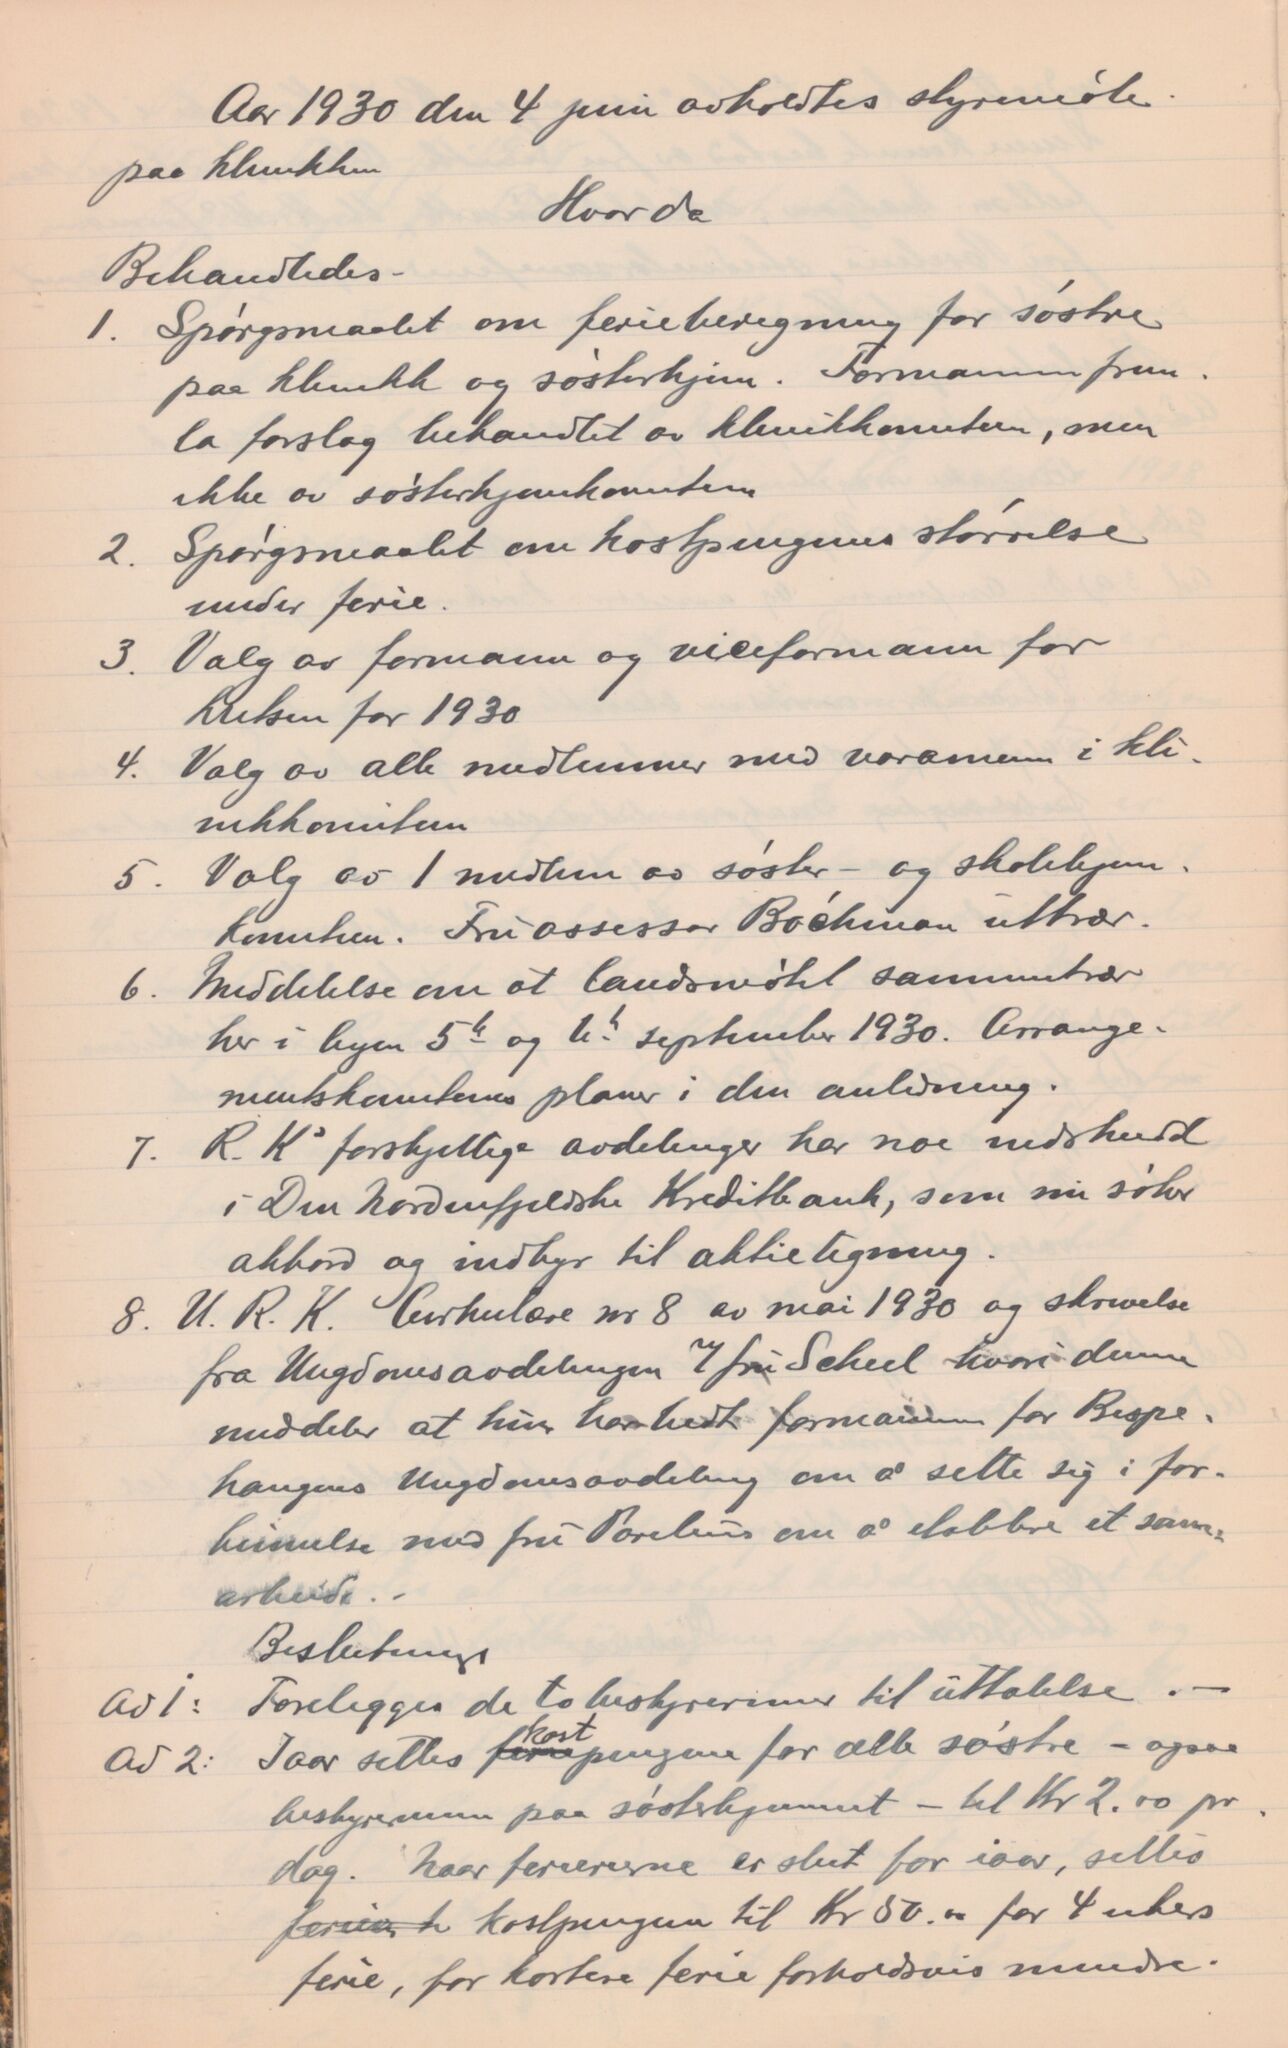 Aar 1930 den 4 juni avholdtes styremöte
paa klinikken
Hvor da
Behandledes -
1. Spörgsmaalet om ferieberegning for söstre
paa klinikk og sösterhjem. Formannen frem-
la forslag behandlet av klinikkomiteen, men
ikke av sösterhjemkomiteen
2. Spörgsmaalet om kostpengenes störrelse
under ferie.
3. Valg av formann og viceformann for
kretsen for 1930
4. Valg av alle medlemmer med varamenn i kli-
nikkomiteen
5. Valg av 1 medlem av söster- og skolehjem-
komiteen. Fru assessor Böchman uttrær.
6. Meddelelse om at landsmötet sammentrær
her i byen 5te og 6te september 1930. Arrange-
mentskomiteens planer i den anledning.
7. R. K's forskjellige avdelinger har noe indskudd
i Den Nordenfjeldske Kreditbank, som nu söker
akkord og indbyr til aktietegning.
8. U. R. K. Cirkulære nr 8 av mai 1930 og skrivelse
fra Ungdomsavdelingen v/ fru Scheel hvori denne
meddeler at hun har bedt formannen for Bispe-
haugens Ungdomsavdeling om å sette sig i for-
bindelse med fru om å etablere et sam-
arbeide. -
Beslutninger
Ad 1: Forelegges de to bestyrerinner til uttalelse. -
Ad 2: Iaar settes ferie kostpengene for alle söstre - ogsaa
bestyrerinnen paa sösterhjemmet - til Kr 2.00 pr.
dag. Naar ferierne er slut for iaar, settes
ferien k kostpengene til Kr 50.00 for 4 ukers
ferie, for kortere ferie forholdsvis mindre.